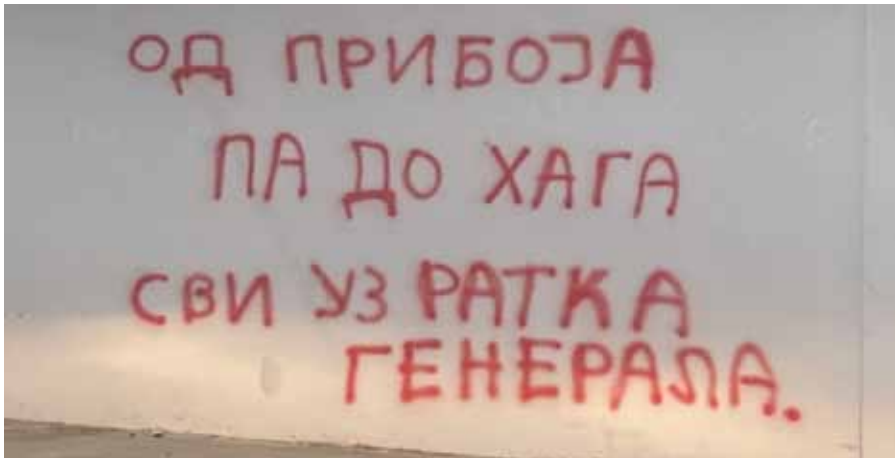 ОД ПРИБОЈА
ПА ДО ХАГА
СВИ УЗ РАТКА
ГЕНЕРАЛА.